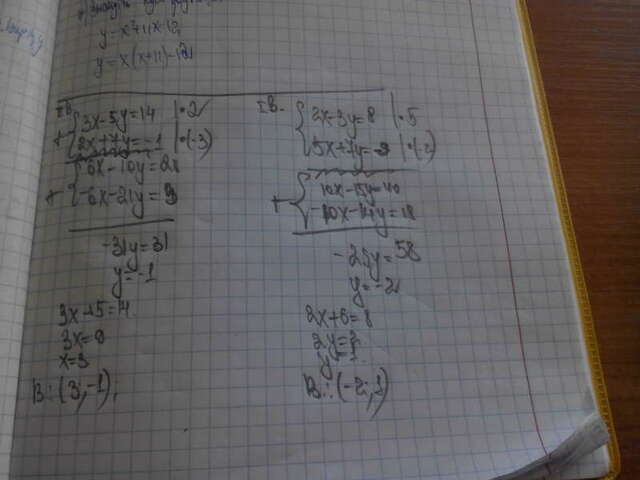 y = x²+11x-12
y = x(x+11)-12
IB.
3x-5y=14 | •2
2x+7y=-1 | •(-3)
+ 6x-10y=28
-6x-21y=3
-31y=31
y=-1
3x+5=14
3x=9
x=3
B: (3;-1);
IB.
2x-3y=8 | •5
5x+7y=-9 | •(-2)
+ 10x-15y=40
-10x-14y=18
-29y=58
y=-2
2x+6=8
2y=2
y=1
B: (-2;1)